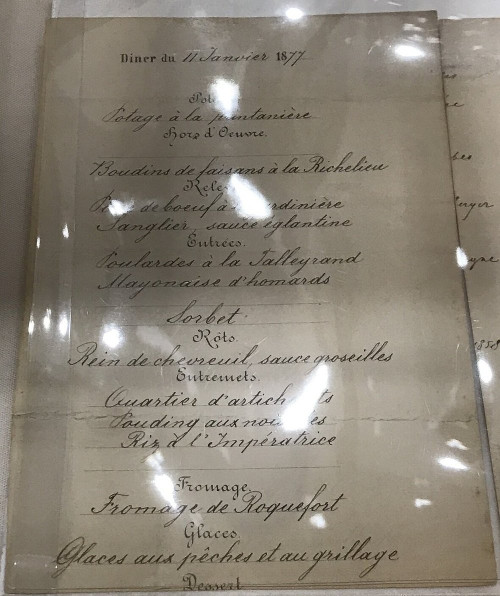 Dîner du 11 Janvier 1877
Potage à la printanière
Hors d'Oeuvre.
Boudins de faisans à la Richelieu
de boeuf à jardinière
Sanglier, sauce églantine
Entrées.
Poulardes à la Talleyrand
Mayonaise d'homards
Sorbet.
Rôts.
Rein de chevreuil, sauce groseilles
Entremets.
Quartier d'artichauts
Pouding aux noisettes
Riz à l'Impératrice
Fromage.
Fromage de Roquefort
Glaces.
Glaces aux pêches et au grillage
Dessert
1858